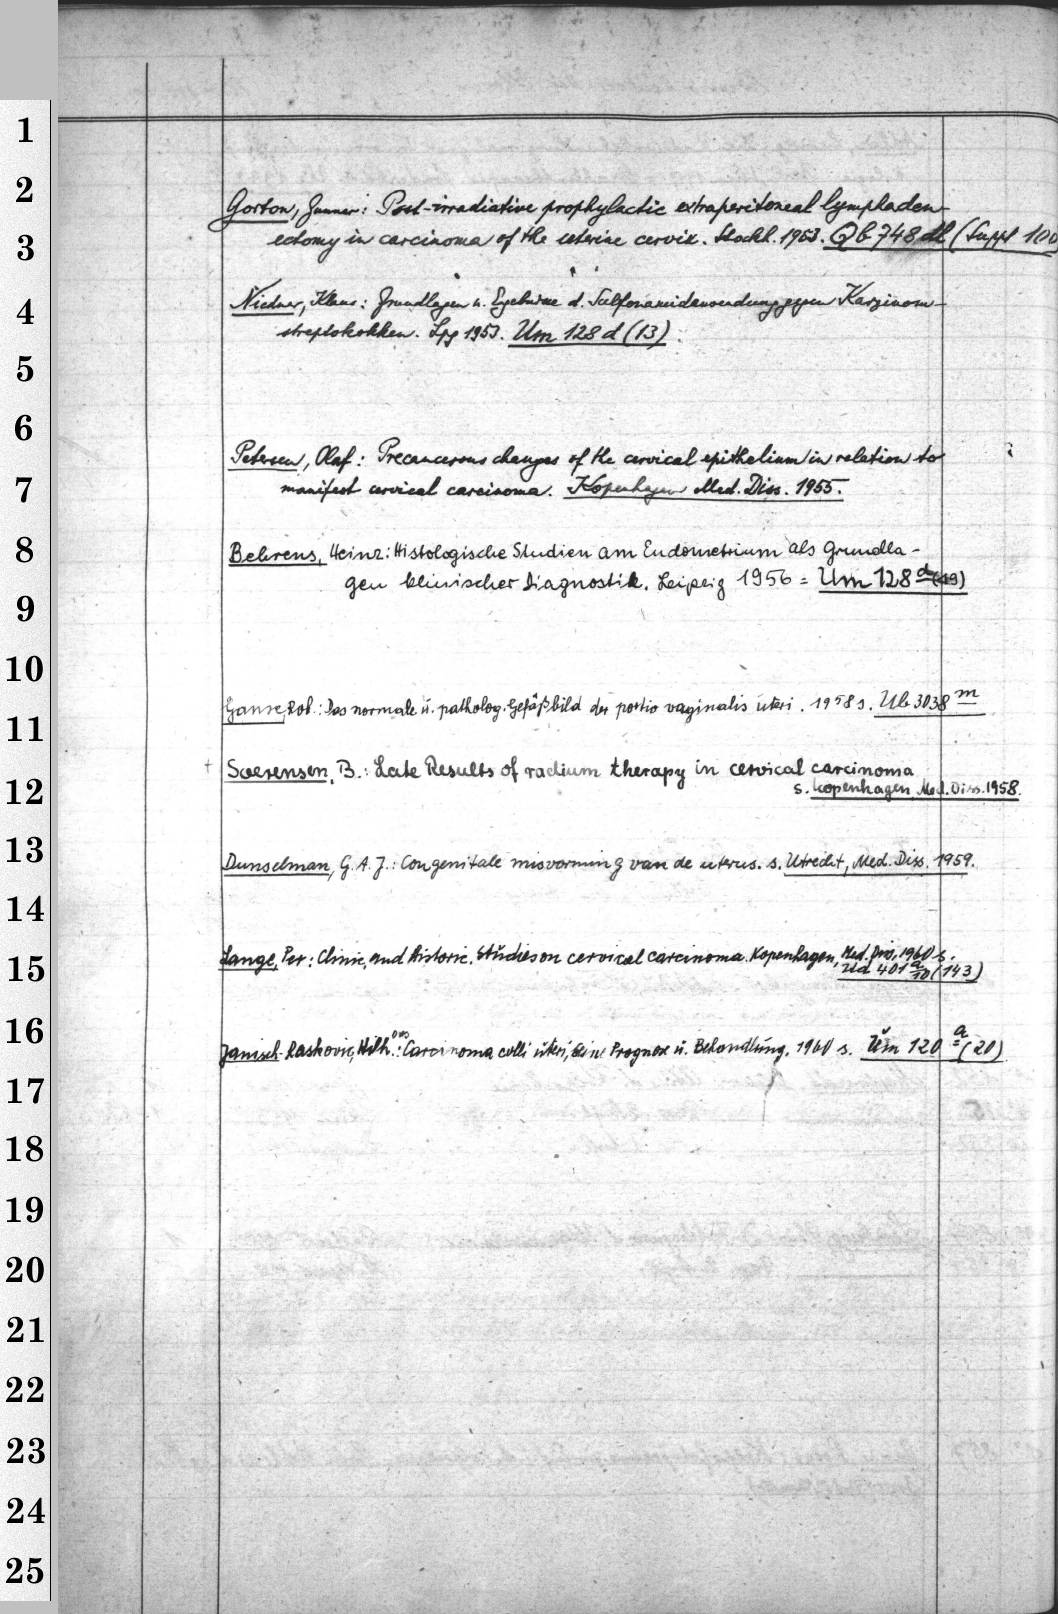 1
2
3
4
5
6
7
8
9
10
11
12
13
14
15
16
17
18
19
20
21
22
23
24
25
Gorton, Gunnar: Post-irradiative prophylactic extraperitoneal lymphaden-
ectomy in carcinoma of the uterine cervix. Stockh. 1953. Qb 748 dl (Suppl 100
Niedner, Klaus: Grundlagen u. Ergebnisse d. Sulfonamidanwendung gegen Karzinom-
streptokokken. Lpg 1953. Um 128 d (13)
Petersen, Olaf: Precancerous changes of the cervical epithelium in relation to
manifest cervical carcinoma. Kopenhagen Med. Diss. 1955.
Behrens, Heinz: Histologische Studien am Endometrium als Grundla-
gen klinischer Diagnostik. Leipzig 1956 = Um 128 d (19)
Ganse, Rob.: Das normale u. patholog. Gefäßbild der portio vaginalis uteri. 1958 s. Ub 3038 m
+ Soerensen, B.: Late Results of radium therapy in cervical carcinoma
s. Kopenhagen, Med. Diss. 1958.
Dunselman, G. A. J.: Congenitale misvorming van de uterus. s. Utrecht, Med. Diss. 1959.
Lange, Per: Clinic. and historic. studies on cervical carcinoma. Kopenhagen, Med. Diss. 1960 s.
Ud 401 a/10 (143)
Janisch-Raskovic, Wilh.: Carcinoma colli uteri, seine Prognose u. Behandlung. 1960 s. Um 120 a (20)